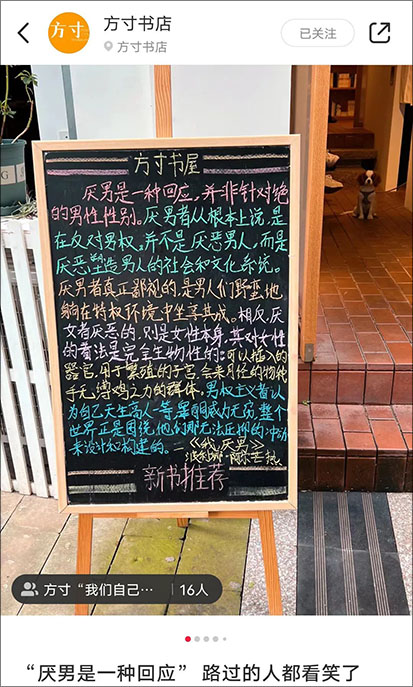 方寸
方寸书店
方寸书店
已关注
方寸书屋
厌男是一种回应，并非针对绝
的男性性别。厌男者从根本上说，是
在反对男权，并不是厌恶男人，而是
厌恶塑造男人的社会和文化系统。
厌男者真正鄙视的，是男人们野蛮地
躺在特权环境中坐享其成。相反，厌
女者厌恶的，则是女性本身，其对女性
的看法是完全生物性的：可以插入的
器官，用于繁殖的子宫，会来月经的物
手无缚鸡之力的群体，男权主义者认
为自己天生高人一等，威力无穷，整个
世界正是围绕他们那无法压抑的冲动
来设计和构建的。—《我，厌男》
新书推荐
方寸“我们自己… 16人
“厌男是一种回应” 路过的人都看笑了